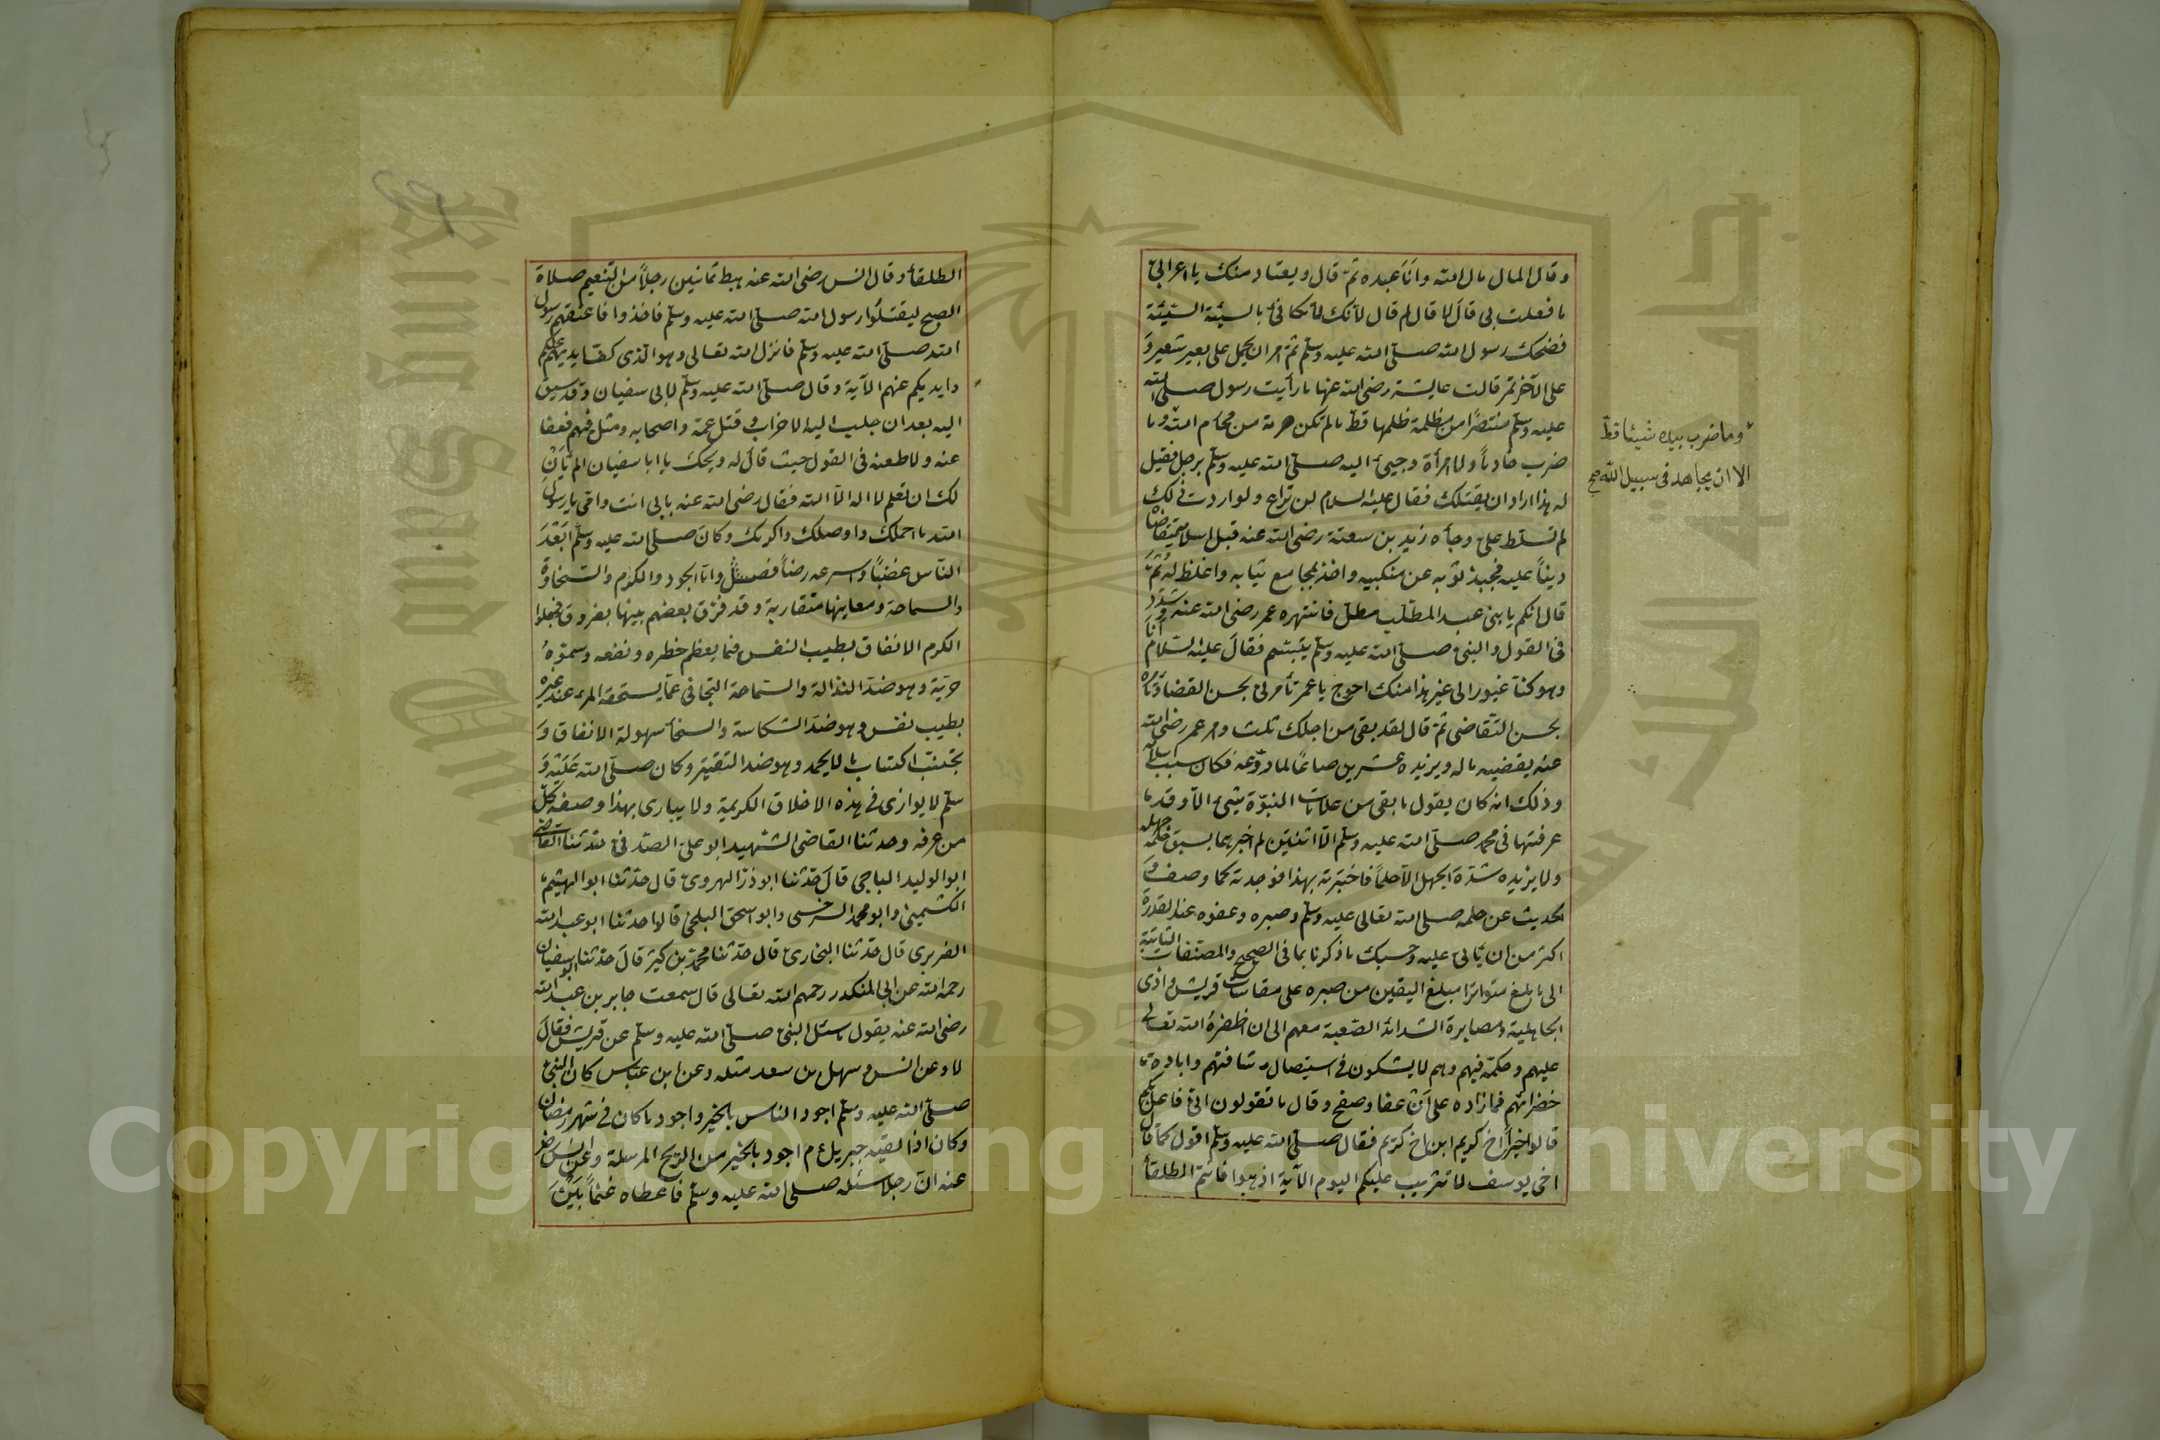 وقال المال مال الله وانا عبده ثم قال ويقاد منك يا اعرابي
ما فعلت بي قال لا قال لم قال لانك لا تكافئ بالسيئة السيئة
فضحك رسول الله صلى الله عليه وسلم ثم امر ان يحمل على بعير شعير و
على الآخر تمر قالت عايشة رضى الله عنها ما رأيت رسول صلى الله
عليه وسلم منتصرا من مظلمة ظلمها قط ما لم تكن حرمة من محارم الله وما
ضرب خادماً ولا امرأة وجيئ اليه صلى الله عليه وسلم برجل فقيل
له هذا اراد ان يقتلك فقال عليه السلام لن تراع ولو اردت ذلك
لم تسلط علي وجأه زيد بن سعنة رضى الله عنه قبل اسلامه يتقاضاه
ديناً عليه فجبذ ثوبه عن منكبيه واخذ بمجامع ثيابه واغلظ له ثم
قال انكم يا بني عبد المطلب مطل فانتهره عمر رضى الله عنه وشدد
في القول والنبي صلى الله عليه وسلم يتبسم فقال عليه السلام انا
وهو كنا غيورا الى غير هذا منك احوج يا عمر تأمرني بحسن القضا وتأمره
بحسن التقاضى ثم قال لقد بقى من اجله ثلث وامر عمر رضى الله
عنه يقضيه ماله ويزيده عشرين صاعًا لما روّعه فكان سبب اسلامه
وذلك انه كان يقول ما بقى من علامات النبوة شئ الا وقد
عرفتها في محمد صلى الله عليه وسلم الا اثنتين لم اخبرهما يسبق حلمه جهله
ولا يزيده شدة الجهل الا حلماً فاختبرته بهذا فوجدته كما وصف و
الحديث عن حلمه صلى الله تعالى عليه وسلم وصبره وعفوه عند القدرة
اكثر من ان ناتي عليه وحسبك ما ذكرنا بما في الصحيح والمصنفات الثابتة
الى ما بلغ متواترا مبلغ اليقين من صبره على مقاسات قريش واذى
الجاهلية ومصابرة الشدائد الصعبة معهم الى ان اظفره الله تعالى
عليهم وحكمه فيهم وهم لا يشكون في استيصال شافتهم وابادة
خضرائهم فما زاده على ان عفا وصفح وقال ما تقولون اني فاعل بكم
قالوا خيراً اخ كريم ابن اخ كريم فقال صلى الله عليه وسلم اقول كما قال
اخي يوسف لا تثريب عليكم اليوم الآية اذهبوا فانتم الطلقأ
وما ضرب بيده شيئا قط
الا ان يجاهد في سبيل الله صح
الطلقأ وقال انس رضى الله عنه هبط ثمانين رجلاً من التنعيم صلاة
الصبح ليقتلوا رسول الله صلى الله عليه وسلم فاخذوا فاعتقهم رسول
الله صلى الله عليه وسلم فانزل الله تعالى وهو الذي كف ايديهم عنكم
وايديكم عنهم الآية وقال صلى الله عليه وسلم لابي سفيان وقد سيق
اليه بعد ان جلب اليه الاحزاب وقتل عمه واصحابه ومثل فيهم فعفا
عنه ولاطفه في القول حيث قال له ويحك يا ابا سفيان الم يأن
لك ان تعلم لا اله الا الله فقال رضى الله عنه بابي انت وامي يا رسول
الله ما احلمك واوصلك واكرمك وكان صلى الله عليه وسلم ابعد
الناس غضباً واسرعه رضاً فصل واما الجود والكرم والسخاوة
والسماحة ومعاينها متقاربة وقد فرق بعضهم بينها بفروق فجعلوا
الكرم الانفاق بطيب النفس فيما يعظم خطره ونفعه وسموه
حرية وهو ضد النذالة والسماحة التجافي عما يستحقه المرء عند غيره
بطيب نفس وهو ضد الشكاسة والسخأ سهولة الانفاق و
تجنب اكتساب ما لا يحمد وهو ضد التقتير وكان صلى الله عليه و
سلم لا يوازى في هذه الاخلاق الكريمة ولا يبارى بهذا وصفه كل
من عرفه وحدثنا القاضي الشهيد ابو علي الصدفي حدثنا القاضي
ابو الوليد الباجي قال حدثنا ابو ذر الهروي قال حدثنا ابو الهيثم
الكشميني وابو محمد السرخسي وابو اسحق البلخي قالوا حدثنا ابو عبد الله
الفربري قال حدثنا البخاري قال حدثنا محمد بن كثير قال حدثنا ابو سفيان
رحمه الله عن ابي المنكدر رحمهم الله تعالى قال سمعت جابر بن عبد الله
رضى الله عنه يقول ما سئل النبي صلى الله عليه وسلم عن قريش فقال
لا وعن انس وسهل بن سعد مثله وعن ابن عباس كان النبي
صلى الله عليه وسلم اجود الناس بالخير واجود ما كان في شهر رمضان
وكان اذا لقيه جبريل ع م اجود بالخير من الريح المرسلة وعن انس رض
عنه ان رجلا سئله صلى الله عليه وسلم فاعطاه غنماً بين
Copyright © King Saud University